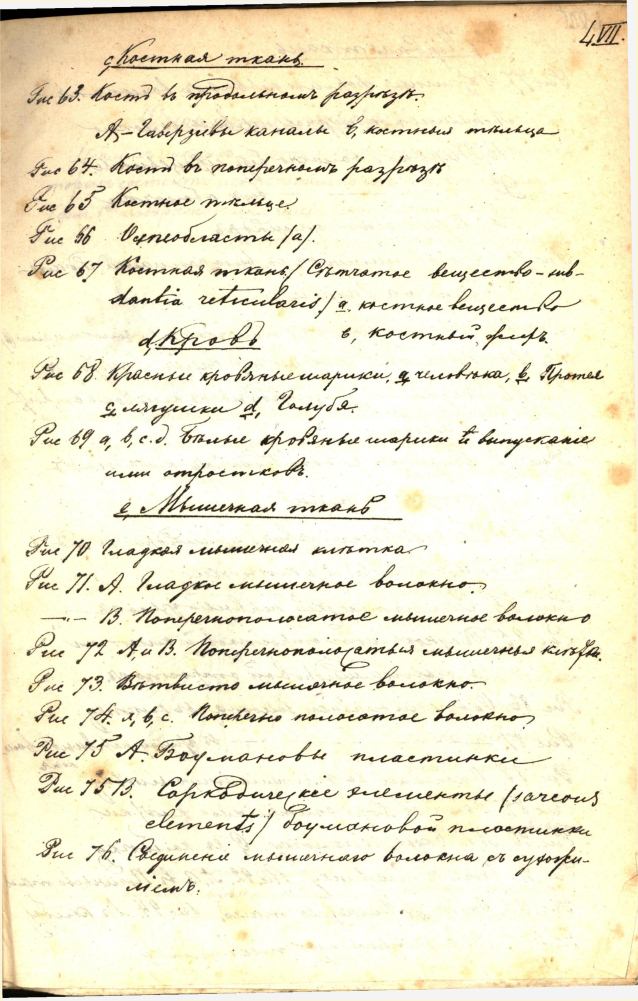 LVII.
c, Костная ткань.
Рис 63. Кость въ продольномъ разрѣзѣ.
А,– Гаверзіевы каналы b, костныя тѣльца
Рис 64. Кость въ поперечномъ разрѣзѣ
Рис 65 Костное тѣльце.
Рис 66 Остеобласты (а).
Рис 67 Костная ткань (Сѣтчатое вещество – sub-
stantia reticularis) a. костное вещество
d, Кровь
b, костный жиръ.
Рис 68. Красные кровяные шарики, a, человѣка, b, Протея
c, лягушки d, Голубя.
Рис 69 a, b, c. d. Бѣлые кровяные шарики и выпусканіе
ими отростковъ.
e, Мышечная ткань
Рис 70 Гладкая мышечная клѣтка
Рис 71. А. Гладкое мышечное волокно.
—„— В. Поперечнополосатое мышечное волокно
Рис 72 А и В. Поперечнополосатыя мышечныя клѣтки.
Рис 73. Вѣтвисто мышечное волокно.
Рис 74. a, b, c. Поперечно полосатое волокно
Рис 75 А. Боумановы пластинки
Рис 75 В. Саркодическіе элементы (sarcous
elements) боумановой пластинки
Рис 76. Соединеніе мышечнаго волокна съ сухожи-
ліемъ.